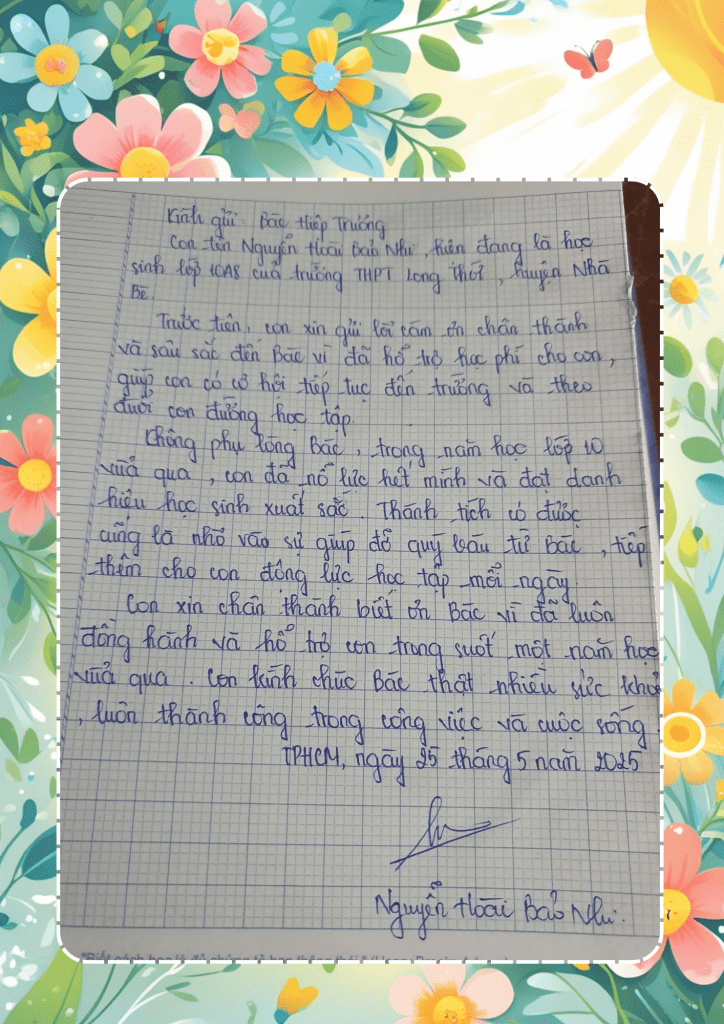 Kính gửi: Bác Hiệp Trương
Con tên Nguyễn Hoài Bảo Nhi, hiện đang là học
sinh lớp 10A8 của trường THPT Long Thới, huyện Nhà
Bè.
Trước tiên, con xin gửi lời cảm ơn chân thành
và sâu sắc đến Bác vì đã hỗ trợ học phí cho con,
giúp con có cơ hội tiếp tục đến trường và theo
đuổi con đường học tập.
Không phụ lòng Bác, trong năm học lớp 10
vừa qua, con đã nỗ lực hết mình và đạt danh
hiệu học sinh xuất sắc. Thành tích có được
cũng là nhờ vào sự giúp đỡ quý báu từ Bác, tiếp
thêm cho con động lực học tập mỗi ngày.
Con xin chân thành biết ơn Bác vì đã luôn
đồng hành và hỗ trợ con trong suốt một năm học
vừa qua. Con kính chúc Bác thật nhiều sức khoẻ
, luôn thành công trong công việc và cuộc sống.
TPHCM, ngày 25 tháng 5 năm 2025
Nguyễn Hoài Bảo Nhi.